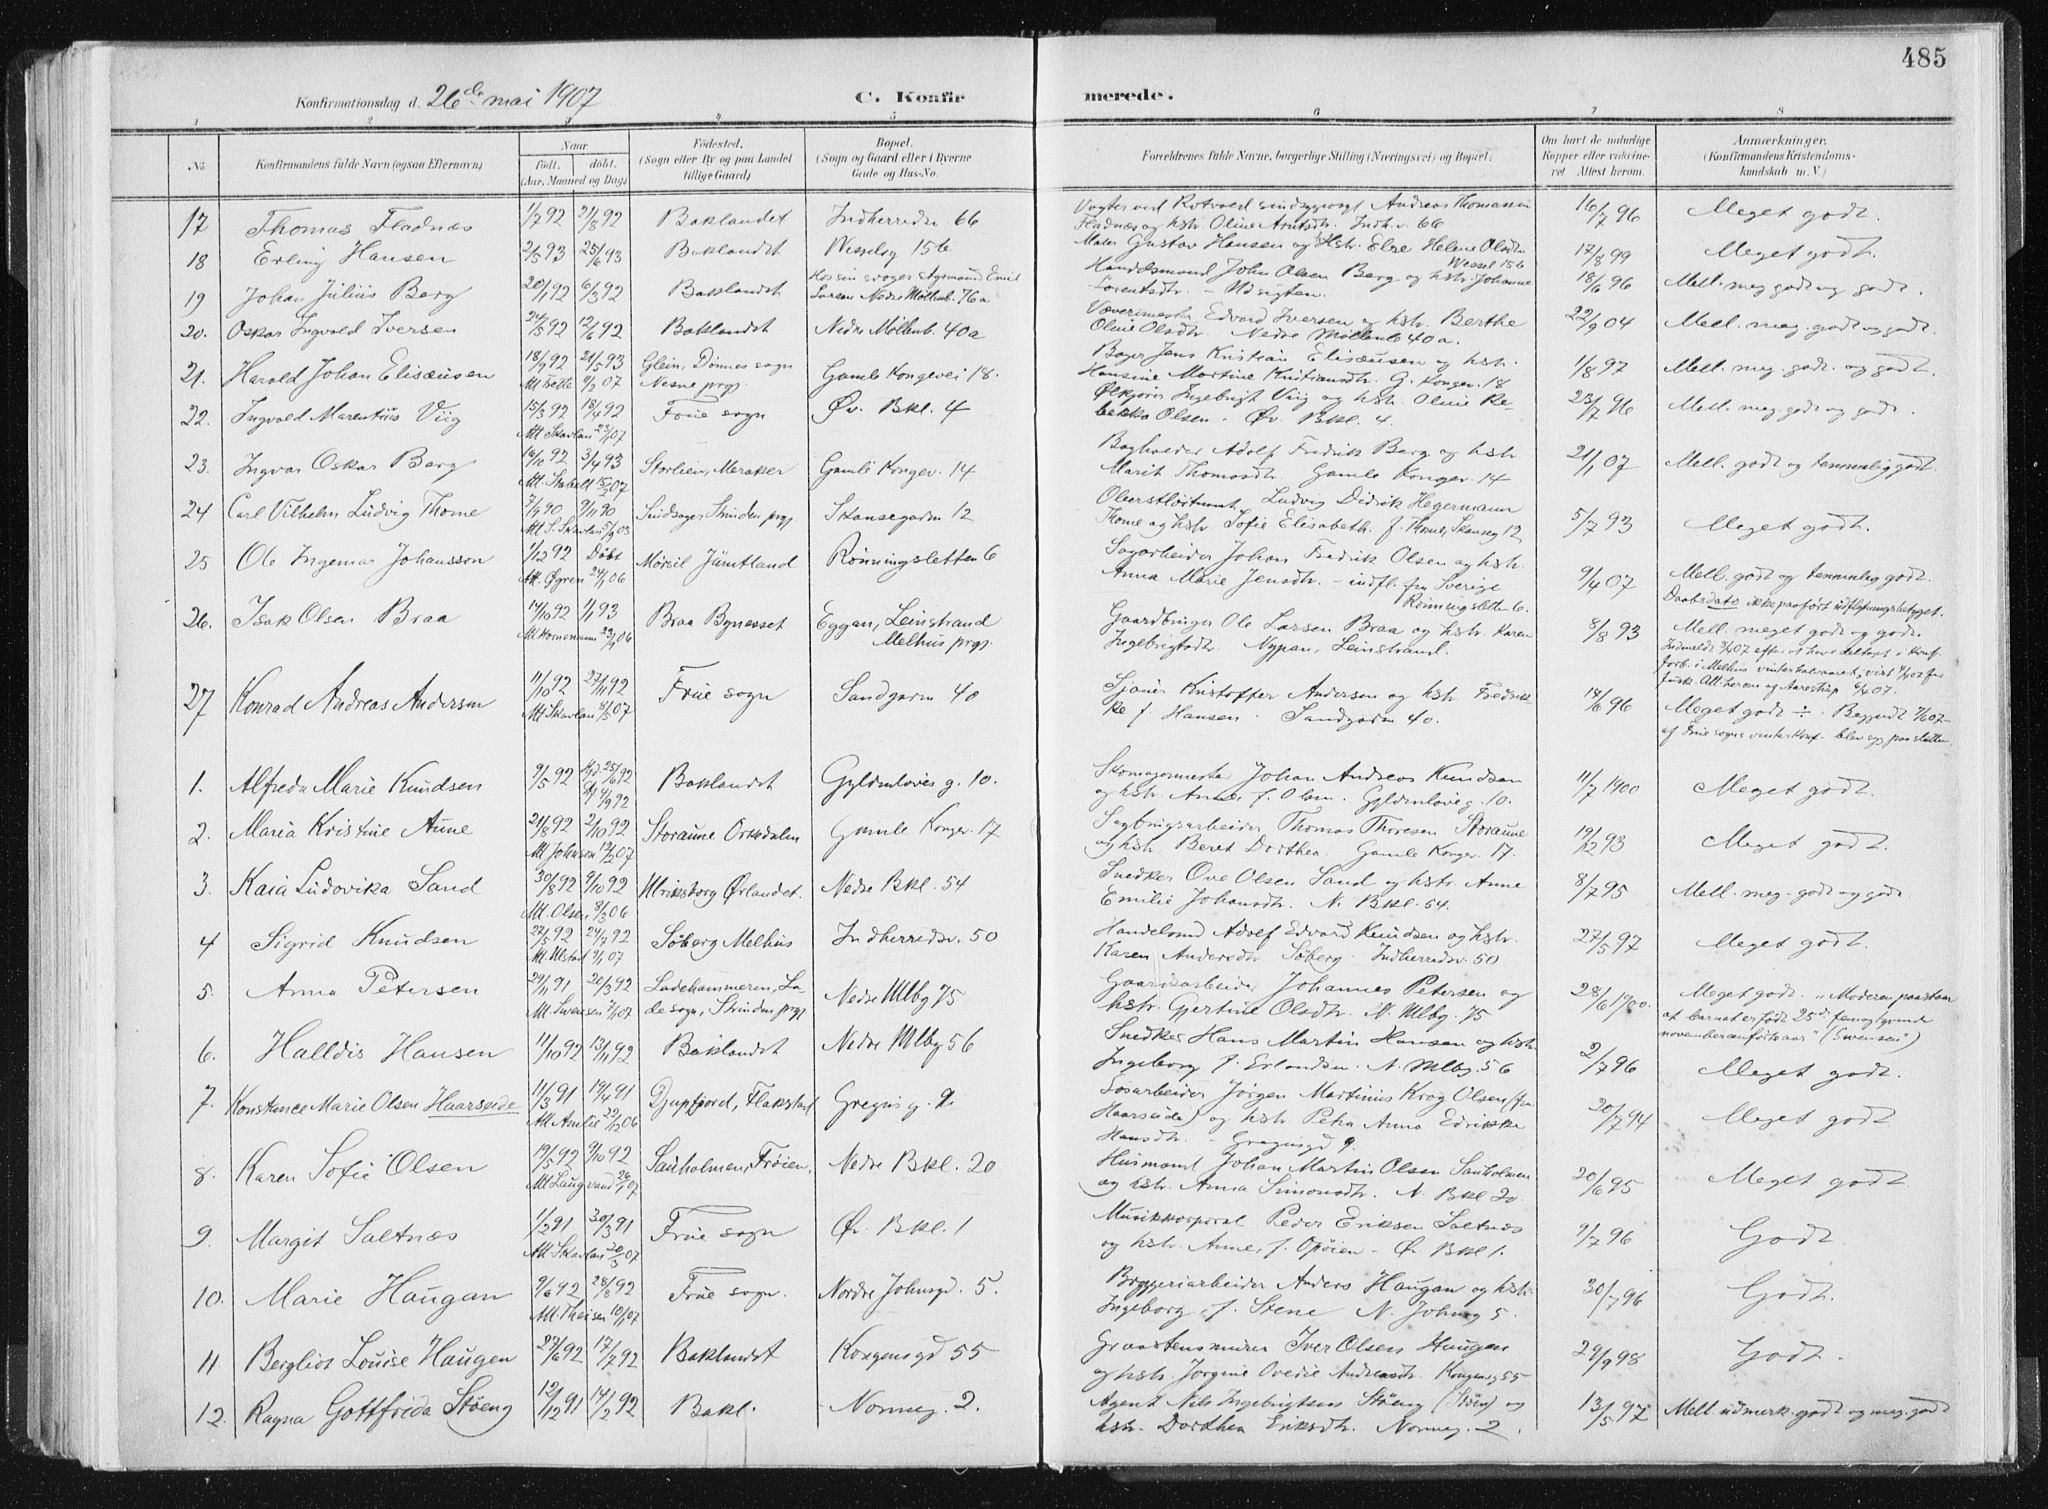 485
Konfirmationsdag d. 26de mai 1907
C. Konfir
merede.
1 2 3 4 5 6 7 8
No
Konfirmandens fulde Navn (ogsaa Efternavn)
Naar
Født. døbt.
(Aar, Maaned og Dag)
Fødested.
(Sogn eller By og paa Landet
tillige Gaard)
Bopæl.
(Sogn og Gaard eller i Byerne
Gade og Hus-No.
Forældrenes fulde Navne, borgerlige Stilling (Næringsvei) og Bopæl.
Om havt de naturlige
Kopper eller vakcine-
ret Attest herom.
Anmærkninger.
(Konfirmandens Kristendoms-
kundskab m. V.)
17 Thomas Fladnæs 1/7 92 21/8 92 Baklandet Indherredsv 66 Andreas Thomassen
Fladnæs og hstr. Oline Indh.v. 66 16/7 96 Meget godt.
18 Erling Hansen 2/5 93 25/6 93 Baklandet Wesselsg 15b Maler Gustav Hansen og Hstr. Else Helene Olsdtr.
Wessel 15b 17/8 99 Meget godt.
19 Johan Julius Berg 20/1 92 6/3 92 Baklandet Hos sin svoger Sigmund Emil
Larsen Nedre Møllenb. 76a Handelsmand John Olsen Berg og hstr. Johanne
Lorentsdtr. - Udsigten. 18/6 96 Mell. meg. godt og godt.
20. Oskar Ingvald Iversen 24/3 92 12/6 92 Baklandet Nedre Møllenb. 40a Værermester Edvard Iversen og hstr. Berthe
Oline Olsdtr. Nedre Møllenb 40a. 22/9 04 Mell. meg. godt og godt.
21. Harald Johan Elisæusen 18/9 92 21/5 93 Glein, Dønnes sogn
Nesne prgj. Gamle Kongevei 18. Bager Jens Kristian Elisæusen og hstr.
Hansine Martine Kristiansdtr. G. Kongev. 18 1/8 97 Mell. meg. godt og godt.
22. Ingvald Marentius Viig 15/3 92 18/4 92 Frue sogn Øv. Bkl. 4 Ølkjører Ingebrigt Viig og hstr. Oline Re-
bekka Olsen. Øv. Bkl. 4. 23/7 96 Mell. meg. godt og godt.
Att Skavlan 23/1 07
23. Ingvar Oskar Berg 16/10 92 3/4 93 Storlien, Meraker Gamle Kongev. 14 Adolf Fredrik Berg og hstr
Marit Thomasdtr. Gamle Kongev. 14 21/1 07 Mell. godt og temmelig godt.
24 Carl Vilhelm Ludvig Thome 7/9 90 9/11 90 Strinden prgj Skansegaden 12 Oberstløitnant Ludvig Didrik Hegermann
Thome og hstr. Sofie Elisabeth f. Thome, Skanseg 12 5/7 93 Meget godt.
25 Ole Ingemar Johansson 1/12 92 Døbt Mørsil Jämtland Rønningsletten 6 Sagarbeider Johan Fredrik Olsen og hstr.
Anna Marie Jensdtr. - indfl. fra Sverige
Rønningsletten 6. 9/4 07 Mell. godt og temmelig godt.
Daabsdato ikke paaført udflytningsbetyget.
Att. Øgren 24/1 06
26. Isak Olsen Braa 14/10 92 1/1 93 Braa Bynesset Eggan, Leinstrand
Melhus prgj. Gaardbruger Ole Larsen Braa og hstr. Karen
Ingebrigtsdtr. Nypan, Leinstrand. 8/8 93 Mell. meget godt og godt.
27 Konrad Andreas Andersen 11/10 92 27/11 92 Frue sogn Sandgaden 40 Sjauer Kristoffer Andersen og hstr. Fredrik
ke f. Hansen. Sandgaden 40. 18/6 96 Meget godt ÷.
Att Skavlan 8/5 07
1. Alfreda Marie Knudsen 9/5 92 Baklandet Gyldenløves g. 10. Skomagermester Johan Andreas Knudsen
og hstr. Anna f. Olsen. Gyldenløve g. 10. 11/7 1900 Meget godt.
2. Maria Kristine Aune 21/8 92 2/10 92 Storaune Orkedalen Gamle Kongev. 17 Sagbrugsarbeider Thomas Thoresen Storaune
og hstr. Beret Dorthea. Gamle Kongev. 17. 19/12 93 Meget godt.
Att Johnsen 12/2 07
3. Kaia Ludovika Sand 30/8 92 9/10 92 Ulriksborg Ørlandet. Nedre Bkl. 54 Snedker Ove Olsen Sand og hstr. Anne
Emilie Johansdtr. N. Bkl. 54. 8/7 95 Mell. meg. godt og godt
Att. Olsen 8/3 06
4 Sigrid Knudsen 27/5 92 24/7 92 Søberg Melhus Indherredsv. 50 Handelsmd Adolf Edvard Knudsen og hstr.
Karen Andersdtr. Søberg. Indherredsv. 50 27/5 97 Meget godt.
5. Anna Petersen 29/11 91 20/3 92 Ladehammeren, La-
de sogn, Strinden prgj Nedre Mlbg 75 Gaardsarbeider Johannes Petersen og
hstr. Gjertine Olsdtr. N. Mlbg. 75 28/6 1900. Meget godt. "Moderen paastaar
at barnet er født 25de, femogtyvende
november anførte aar" (Svensen)
Att. Svensen 7/1 07
6. Halldis Hansen 11/10 92 13/11 92 Baklandet Nedre Mlbg 56 Snedker Hans Martin Hansen og hstr.
Ingeborg f. Erlandsen. N. Mlbg. 56 2/7 96 Meget godt.
7. Konstance Marie Olsen Haarseide 11/3 91 19/4 91 Djupfjord, Flakstad Gregus g. 9. Losarbeider Jørgen Martinius Krog Olsen (fra
Haarseide) og hstr. Petra Anna Edrikke
Hansdtr. - Gregusgd 9. 20/7 94 Meget godt.
8. Karen Sofie Olsen 19/5 92 9/10 92 Sauholmen, Frøien, Nedre Bkl. 20 Husmand Johan Martin Olsen Sauholmen
og hstr. Anna Simonsdtr. N. Bkl 20. 20/6 95 Meget godt
Att Laugsand 26/1 07
9. Margit Saltnæs 1/2 91 30/3 91 Frue sogn Øv. Bkl. 1 Musikkorporal Peder Eriksen Saltnæs
og hstr. Anne, f. Opøien - Øv. Bkl 1. 9/7 96 Godt.
Att Skavlan 20/3 07
10. Marie Haugan 9/6 92 28/8 92 Frue sogn. Nordre Johsgd. 5. Bryggeriarbeider Anders Haugan og hstr.
Ingeborg, f. Stene N. Johsg 5. 30/7 96 Godt.
Att. Theisen 10/1 07
11 Bergliot Louise Haugen 27/6 92 17/7 92 Baklandet Kongensgd 55 Graastensmurer Iver Olsen Haugen
og hstr. Jørgine Ovedie Andreasdtr. Kongensg 55 29/9 98 Godt.
12. Ragna Gottfrida Støeng 12/12 91 14/2 92 Bakl. Nonneg. 2. Agent Nils Ingebrigtsen Støeng (Støen) og
hstr. Dorthea Eriksdtr. Nonneg. 2. 13/5 97 Mell. udmerk. godt og meg. godt